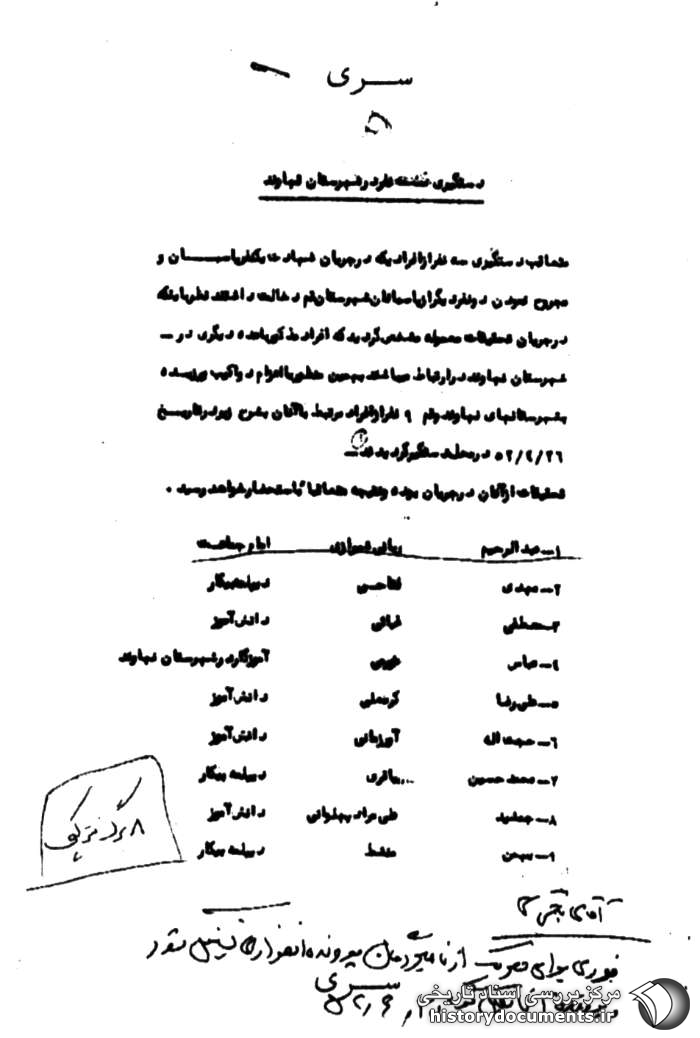 سری
دستگیری نه نفر در شهرستان نهاوند
متعاقب دستگیری سه نفر از افرادیکه در جریان شهادت یکنفر پاسبان و
مجروح نمودن دو نفر دیگر از پاسبانان شهرستان قم دخالت داشتند نظر باینکه
در جریان تحقیقات معموله مشخص گردید که افراد مذکور با عده دیگری در ـ
شهرستان نهاوند در ارتباط میباشند بهمین منظور با اعزام دو اکیپ ورزیده
بشهرستانهای نهاوند و قم ۹ نفر از افراد مرتبط با آنان بشرح زیر در تاریخ
۵۲/۴/۲۶ در محل دستگیر گردیدند ـ
تحقیقات از آنان در جریان بوده و نتیجه متعاقباً باستحضار خواهد رسید .
۱ـ عبدالرحیم ربانی شیرازی امام جماعت
۲ـ مهدی دیپلمه بیکار
۳ـ مصطفی دانش آموز
۴ـ عباس آموزگار در شهرستان نهاوند
۵ـ علیرضا کرمعلی دانش آموز
۶ـ حجت اله آورزمانی دانش آموز
۷ـ محمد حسین دیپلمه بیکار
۸ـ جمشید علی مراد پهلوانی دانش آموز
۹ـ بهمن منشط دیپلمه بیکار
۸ برگ
آقای
فوری برای هر یک از نامبردگان پرونده انفرادی تشکیل شود
سری
مرکز بررسی اسناد تاریخی
historydocuments.ir